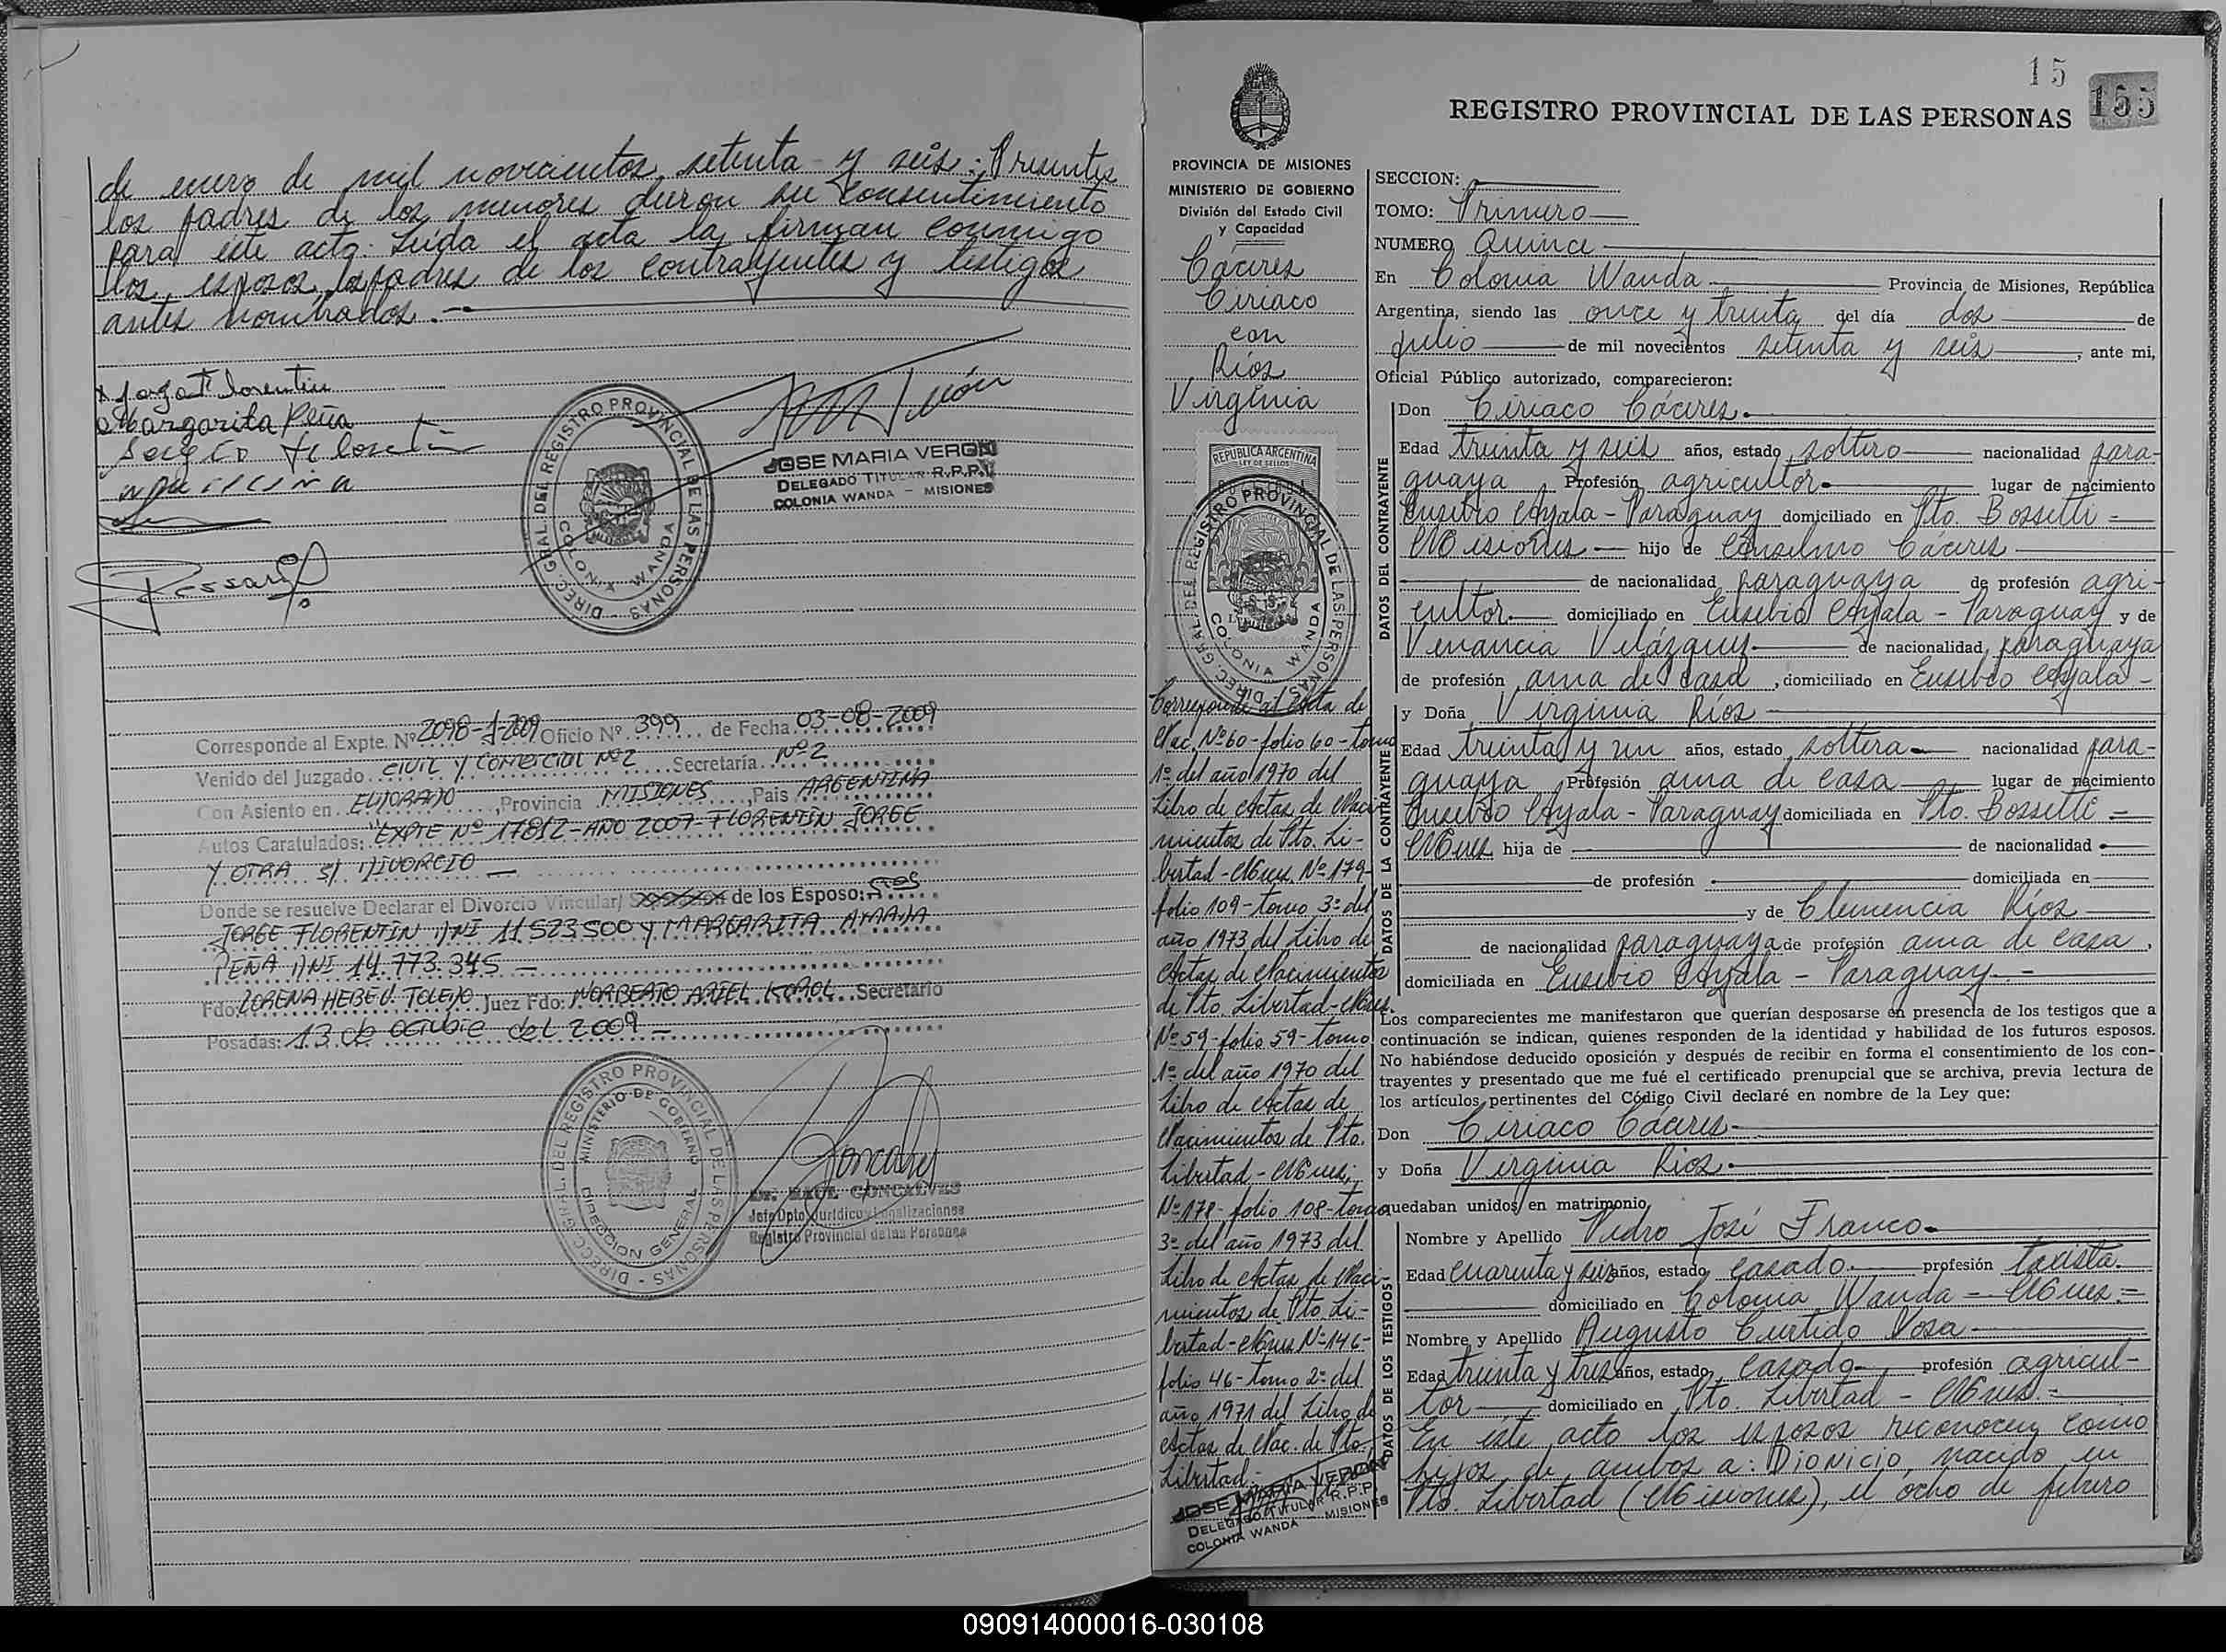 de enero de mil novecientos setenta y seis: Presentes
los padres de los menores dieron su consentimiento
para este acto. Leída el acta la firman conmigo
los esposos, los padres de los contrayentes y testigos
antes nombrados.-
Jorge Florentin
Margarita Peña
DIREC. GRAL. DEL REGISTRO PROVINCIAL DE LAS PERSONAS
COLONIA WANDA
JOSE MARIA VERON
DELEGADO TITULAR R.P.P.
COLONIA WANDA - MISIONES
Corresponde al Expte. Nº 2098-J-2009 Oficio Nº 399 de Fecha 03-08-2009
Venido del Juzgado CIVIL Y COMERCIAL Nº2 Secretaría Nº 2
Con Asiento en ELDORADO, Provincia MISIONES, Pais ARGENTINA
Autos Caratulados: "EXPTE Nº 17812-AÑO 2007-FLORENTIN JORGE
Y OTRA S/ DIVORCIO -
Donde se resuelve Declarar el Divorcio Vincular/ de los Esposo: Sres
JORGE FLORENTIN DNI 11.523.500 Y MARGARITA AMADA
PEÑA DNI 14.773.345 -
Fdo: LORENA HEBE V. TOLEDO Juez Fdo: NORBERTO ARIEL KOROL Secretario
Posadas: 13 de octubre del 2009 -
DIREC. GRAL. DEL REGISTRO PROVINCIAL DE LAS PERSONAS
MINISTERIO DE GOBIERNO
DIRECCION GENERAL
Dr. RAUL GONCALVES
Jefe Dpto. Jurídico y Legalizaciones
Registro Provincial de las Personas
15
155
REGISTRO PROVINCIAL DE LAS PERSONAS
PROVINCIA DE MISIONES
MINISTERIO DE GOBIERNO
División del Estado Civil
y Capacidad
Cáceres
Ciriaco
con
Ríos
Virginia
REPUBLICA ARGENTINA
LEY DE SELLOS
DIREC. GRAL. DEL REGISTRO PROVINCIAL DE LAS PERSONAS
COLONIA WANDA
Corresponde al Acta de
Nac. Nº 60-folio 60-tomo
1º del año 1970 del
Libro de Actas de Naci
mientos de Pto. Li-
bertad-Mnes. Nº 179-
folio 109-tomo 3º del
año 1973 del Libro de
Actas de Nacimientos
de Pto. Libertad-Mnes.
Nº 59-folio 59-tomo
1º del año 1970 del
Libro de Actas de
Nacimientos de Pto.
Libertad-Mnes;
Nº 178-folio 108-tomo
3º del año 1973 del
Libro de Actas de Naci-
mientos de Pto. Li-
bertad-Mnes Nº 146-
folio 46-tomo 2º del
año 1971 del Libro de
Actas de Nac. de Pto.
Libertad.-
JOSE MARIA VERON
DELEGADO TITULAR R.P.P.
COLONIA WANDA - MISIONES
SECCION:
TOMO: Primero
NUMERO Quince
En Colonia Wanda Provincia de Misiones, República
Argentina, siendo las once y treinta del día dos de
julio de mil novecientos setenta y seis, ante mi,
Oficial Público autorizado, comparecieron:
DATOS DEL CONTRAYENTE
Don Ciriaco Cáceres.
Edad treinta y seis años, estado soltero nacionalidad para-
guaya Profesión agricultor. lugar de nacimiento
Eusebio Ayala - Paraguay domiciliado en Pto. Bossetti -
Misiones hijo de Anselmo Cáceres
de nacionalidad paraguaya de profesión agri-
cultor. domiciliado en Eusebio Ayala - Paraguay y de
Venancia Velázquez de nacionalidad paraguaya
de profesión ama de casa, domiciliado en Eusebio Ayala-
DATOS DE LA CONTRAYENTE
y Doña Virginia Ríos
Edad treinta y un años, estado soltera nacionalidad para-
guaya Profesión ama de casa lugar de nacimiento
Eusebio Ayala - Paraguay domiciliada en Pto. Bossetti -
Mnes hija de de nacionalidad
de profesión domiciliada en
y de Clemencia Ríos
de nacionalidad paraguaya de profesión ama de casa,
domiciliada en Eusebio Ayala - Paraguay.-
Los comparecientes me manifestaron que querían desposarse en presencia de los testigos que a
continuación se indican, quienes responden de la identidad y habilidad de los futuros esposos.
No habiéndose deducido oposición y después de recibir en forma el consentimiento de los con-
trayentes y presentado que me fué el certificado prenupcial que se archiva, previa lectura de
los artículos pertinentes del Código Civil declaré en nombre de la Ley que:
Don Ciriaco Cáceres
y Doña Virginia Ríos
quedaban unidos en matrimonio.
DATOS DE LOS TESTIGOS
Nombre y Apellido Pedro José Franco
Edad Cuarenta y seis años, estado casado. profesión taxista.
domiciliado en Colonia Wanda - Mnes.-
Nombre y Apellido Augusto Curtido Sosa
Edad treinta y tres años, estado casado profesión agricul-
tor domiciliado en Pto. Libertad - Mnes.-
En éste acto los esposos reconocen como
hijos de ambos a: Dionicio, nacido en
Pto. Libertad (Misiones), el ocho de febrero
090914000016-030108